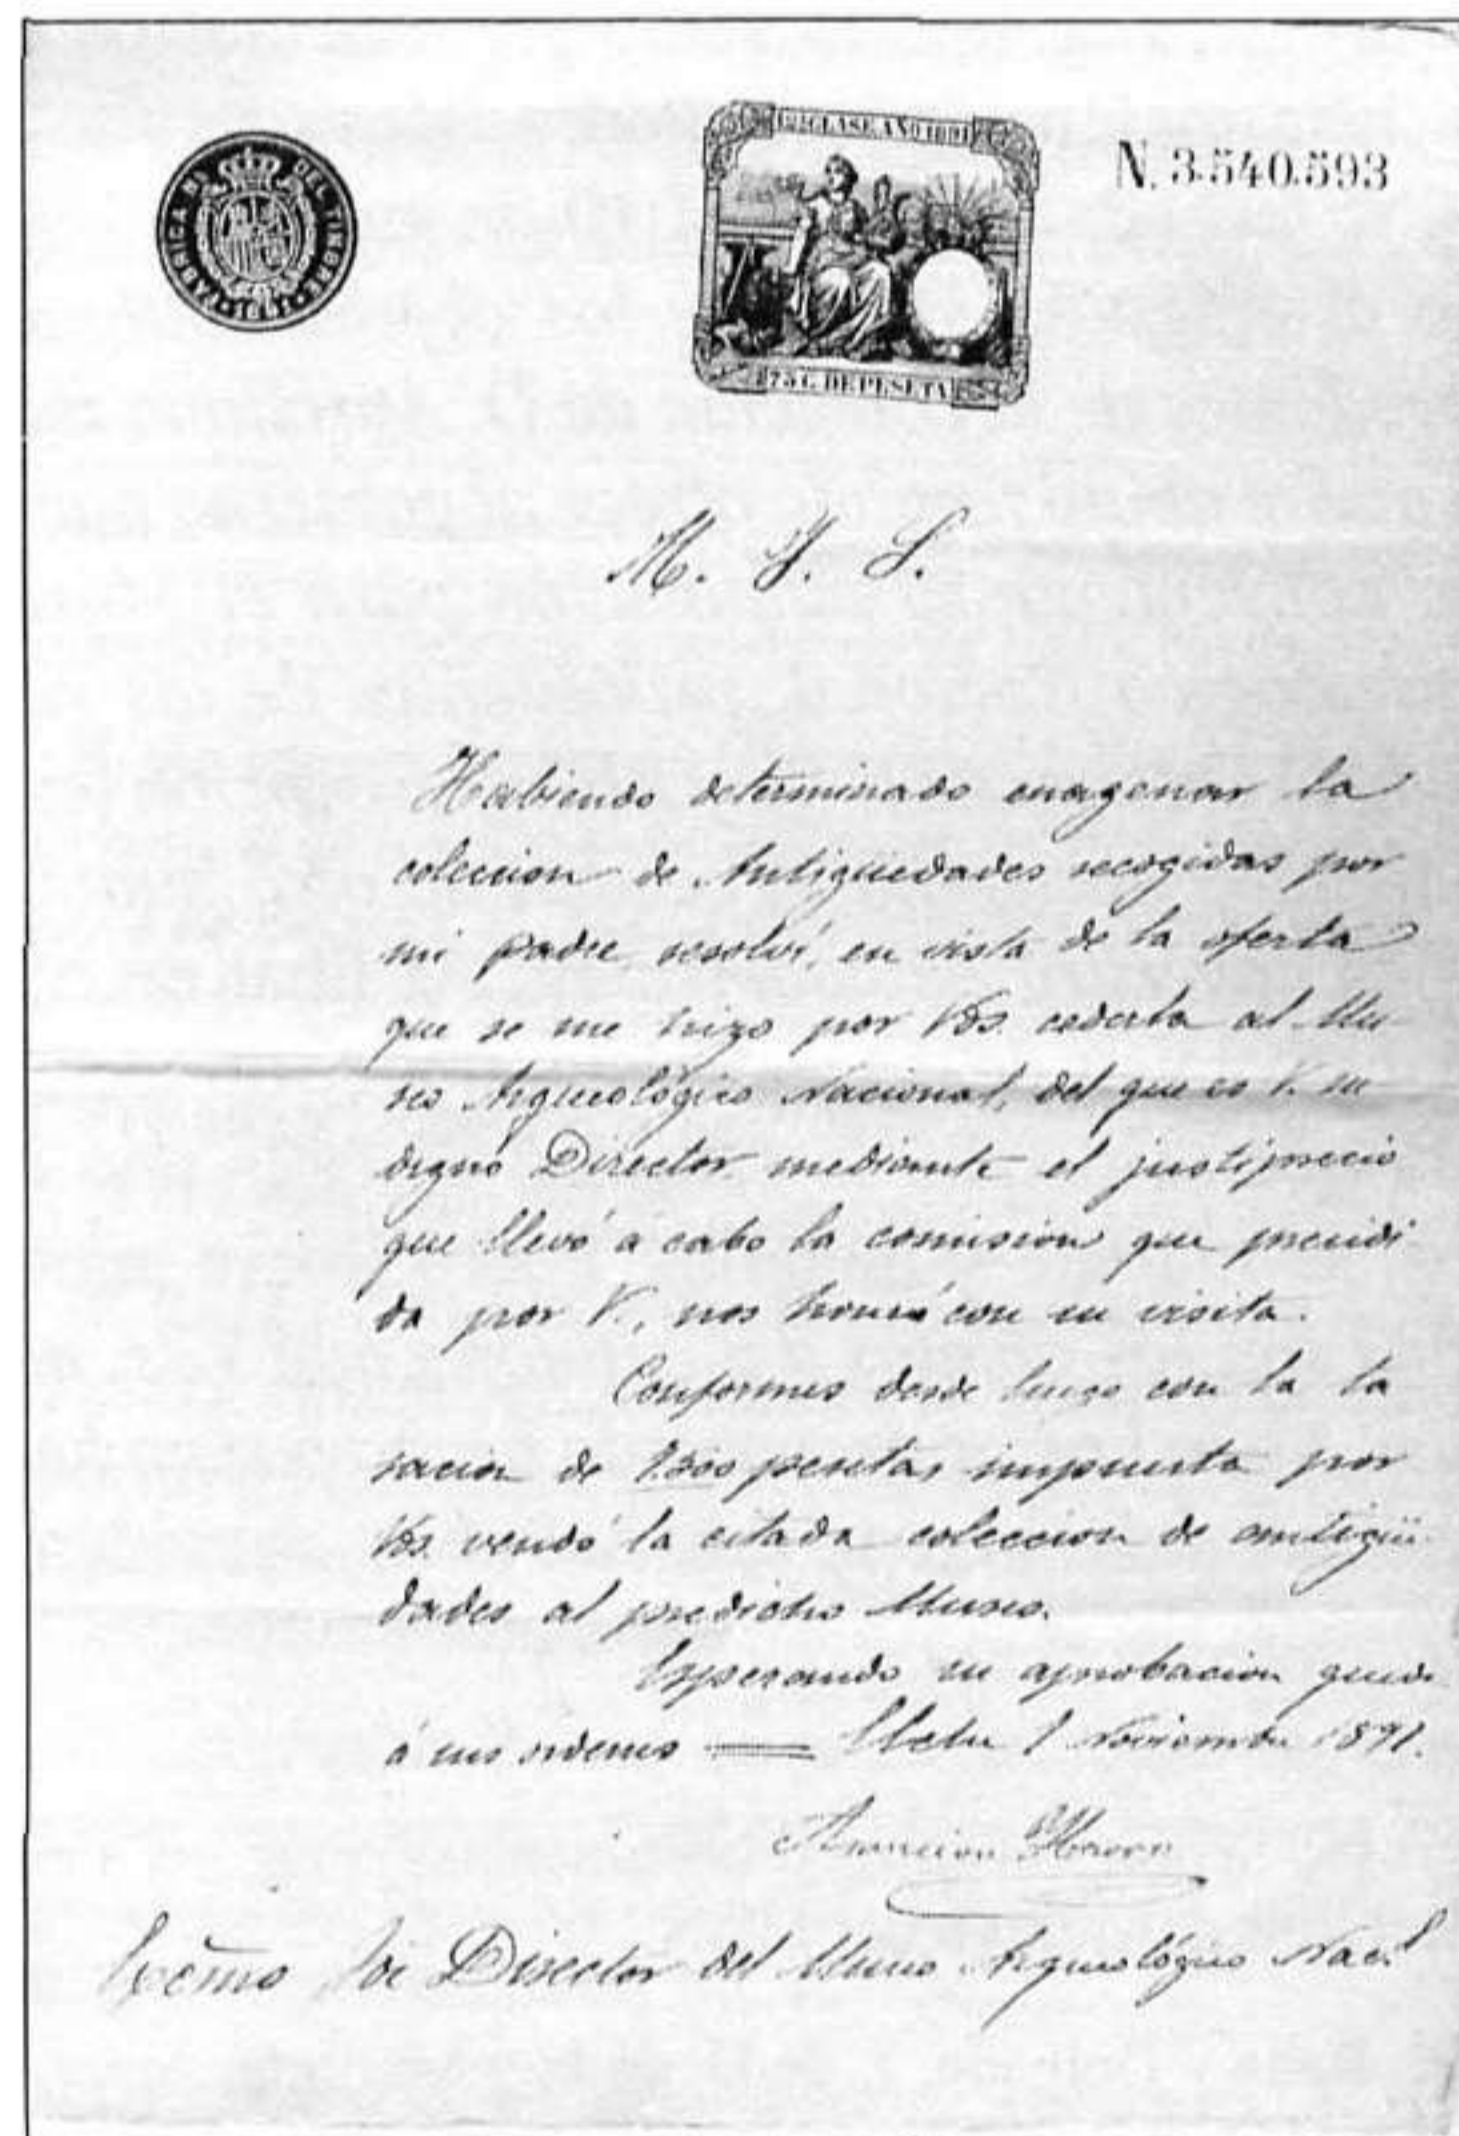 FABRICA NAL DEL TIMBRE
12ª CLASE AÑO 1891
75 C. DE PESETA
N. 3.540.593
M. Y. S.
Habiendo determinado enagenar la
coleccion de Antigüedades recogidas por
mi padre resolví, en vista de la oferta
que se me hizo por Vds. cederla al Mu-
seo Arqueológico Nacional, del que es V. su
digno Director mediante el justiprecio
que llevó a cabo la comision que presidi-
da por V., nos honró con su visita.
Conformes desde luego con la ta
sacion de pesetas impuesta por
Vds. vendo la citada coleccion de antigüe-
dades al predicho Museo.
Esperando su aprobacion queda
á sus ordenes Noviembre 1891.
Asuncion
Excmo Sor Director del Museo Arqueológico Nacl